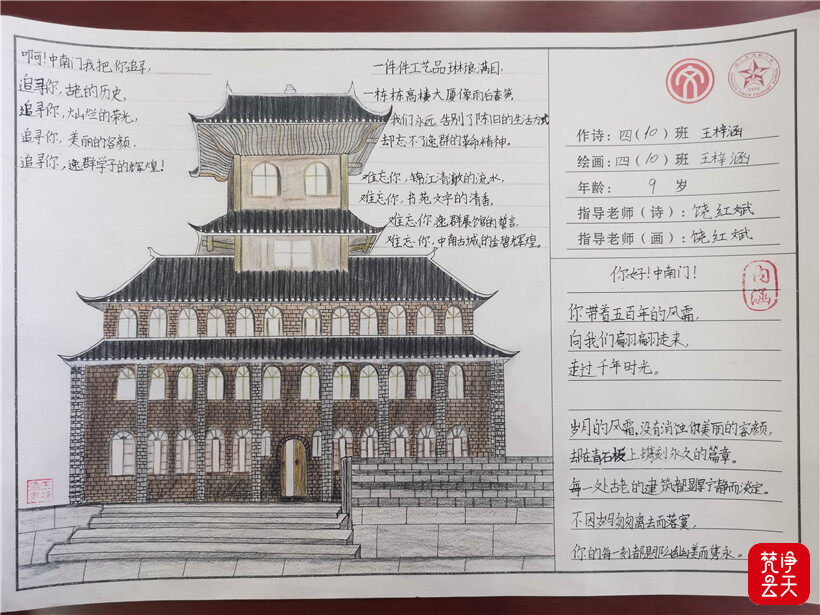 作诗：四（10）班 王梓涵
绘画：四（10）班 王梓涵
年龄： 9 岁
指导老师（诗）：饶红斌
指导老师（画）：饶红斌
你好！中南门！
你带着五百年的风霜，
向我们翩翩走来，
走过千年时光。
岁月的风霜，没有消蚀你美丽的容颜，
却在青石板上镌刻永久的篇章。
每一处古老的建筑都显宁静而淡定。
不因岁月匆匆离去而落寞，
你的每一刻都是那么幽美而隽永。
啊！中南门我把你追寻，
追寻你，古老的历史，
追寻你，灿烂的荣光，
追寻你，美丽的容颜，
追寻你，逸群学子的辉煌！
一件件工艺品琳琅满目，
一栋栋高楼大厦像雨后春笋，
我们永远告别了陈旧的生活方式
却忘不了逸群的革命精神。
难忘你，锦江清澈的流水，
难忘你，书苑文字的清香，
难忘你，逸群展馆的誓言，
难忘你，中南古城的金碧辉煌。
梵净
云天